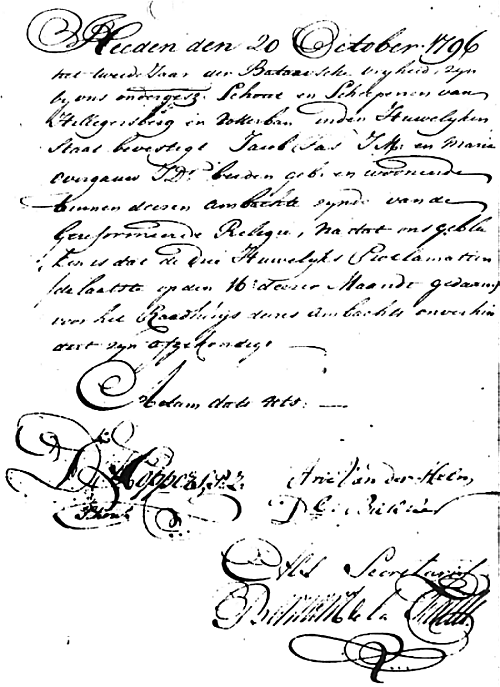 Heeden den 20 October 1796
het tweede Jaar der Bataavsche vryheid, zyn
by ons ondergesz: Schout en Scheepenen van
Hillegersberg en Rotteban inden Huwelyken
Staat bevestigt Jacob Tas J.M: en Maria
overgauw J.Dr. beiden geb: en woonende
binnen deesen Ambachte zynde van de
Gereformeerde Religie, na dat ons geble
ken is dat de drie Huwelyks Proclamatien
de laatste op den 16: deeser Maand gedaan
voor het Raadhuys deeses Ambachts onverhin
dert zyn afgekondigt
Actum datu uts: —
D: Hoppe
Schout
Arie van der Helm
D
Als Secretaris
de la